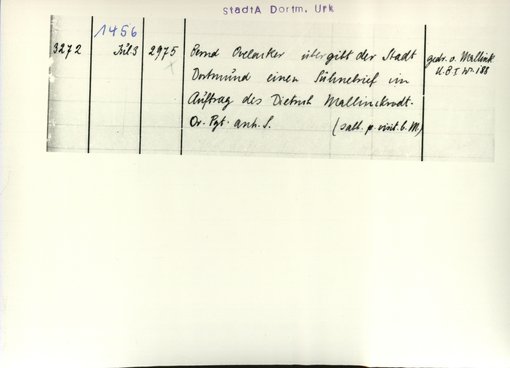 StadtA Dortm. Urk
1456
3272 Juli 3 2975 Bernd Ovelacker übergibt der Stadt
Dortmund einen Sühnebrief im
Auftrag des Dietrich Mallinckrodt.
Or. Pgt. anh. S. (sabb. p. visit. b. M)
gedr. v. Mallink
U.B I Nr 188